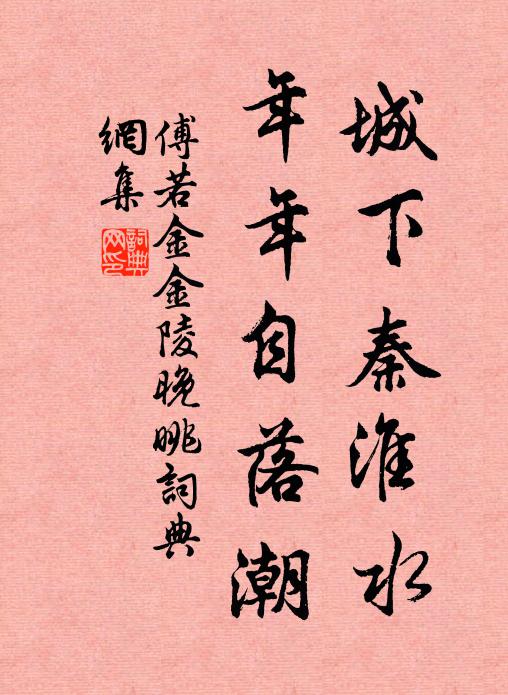 城下秦淮水
年年自落潮
傅若金金陵晚眺詞典
網集
詞典
网印